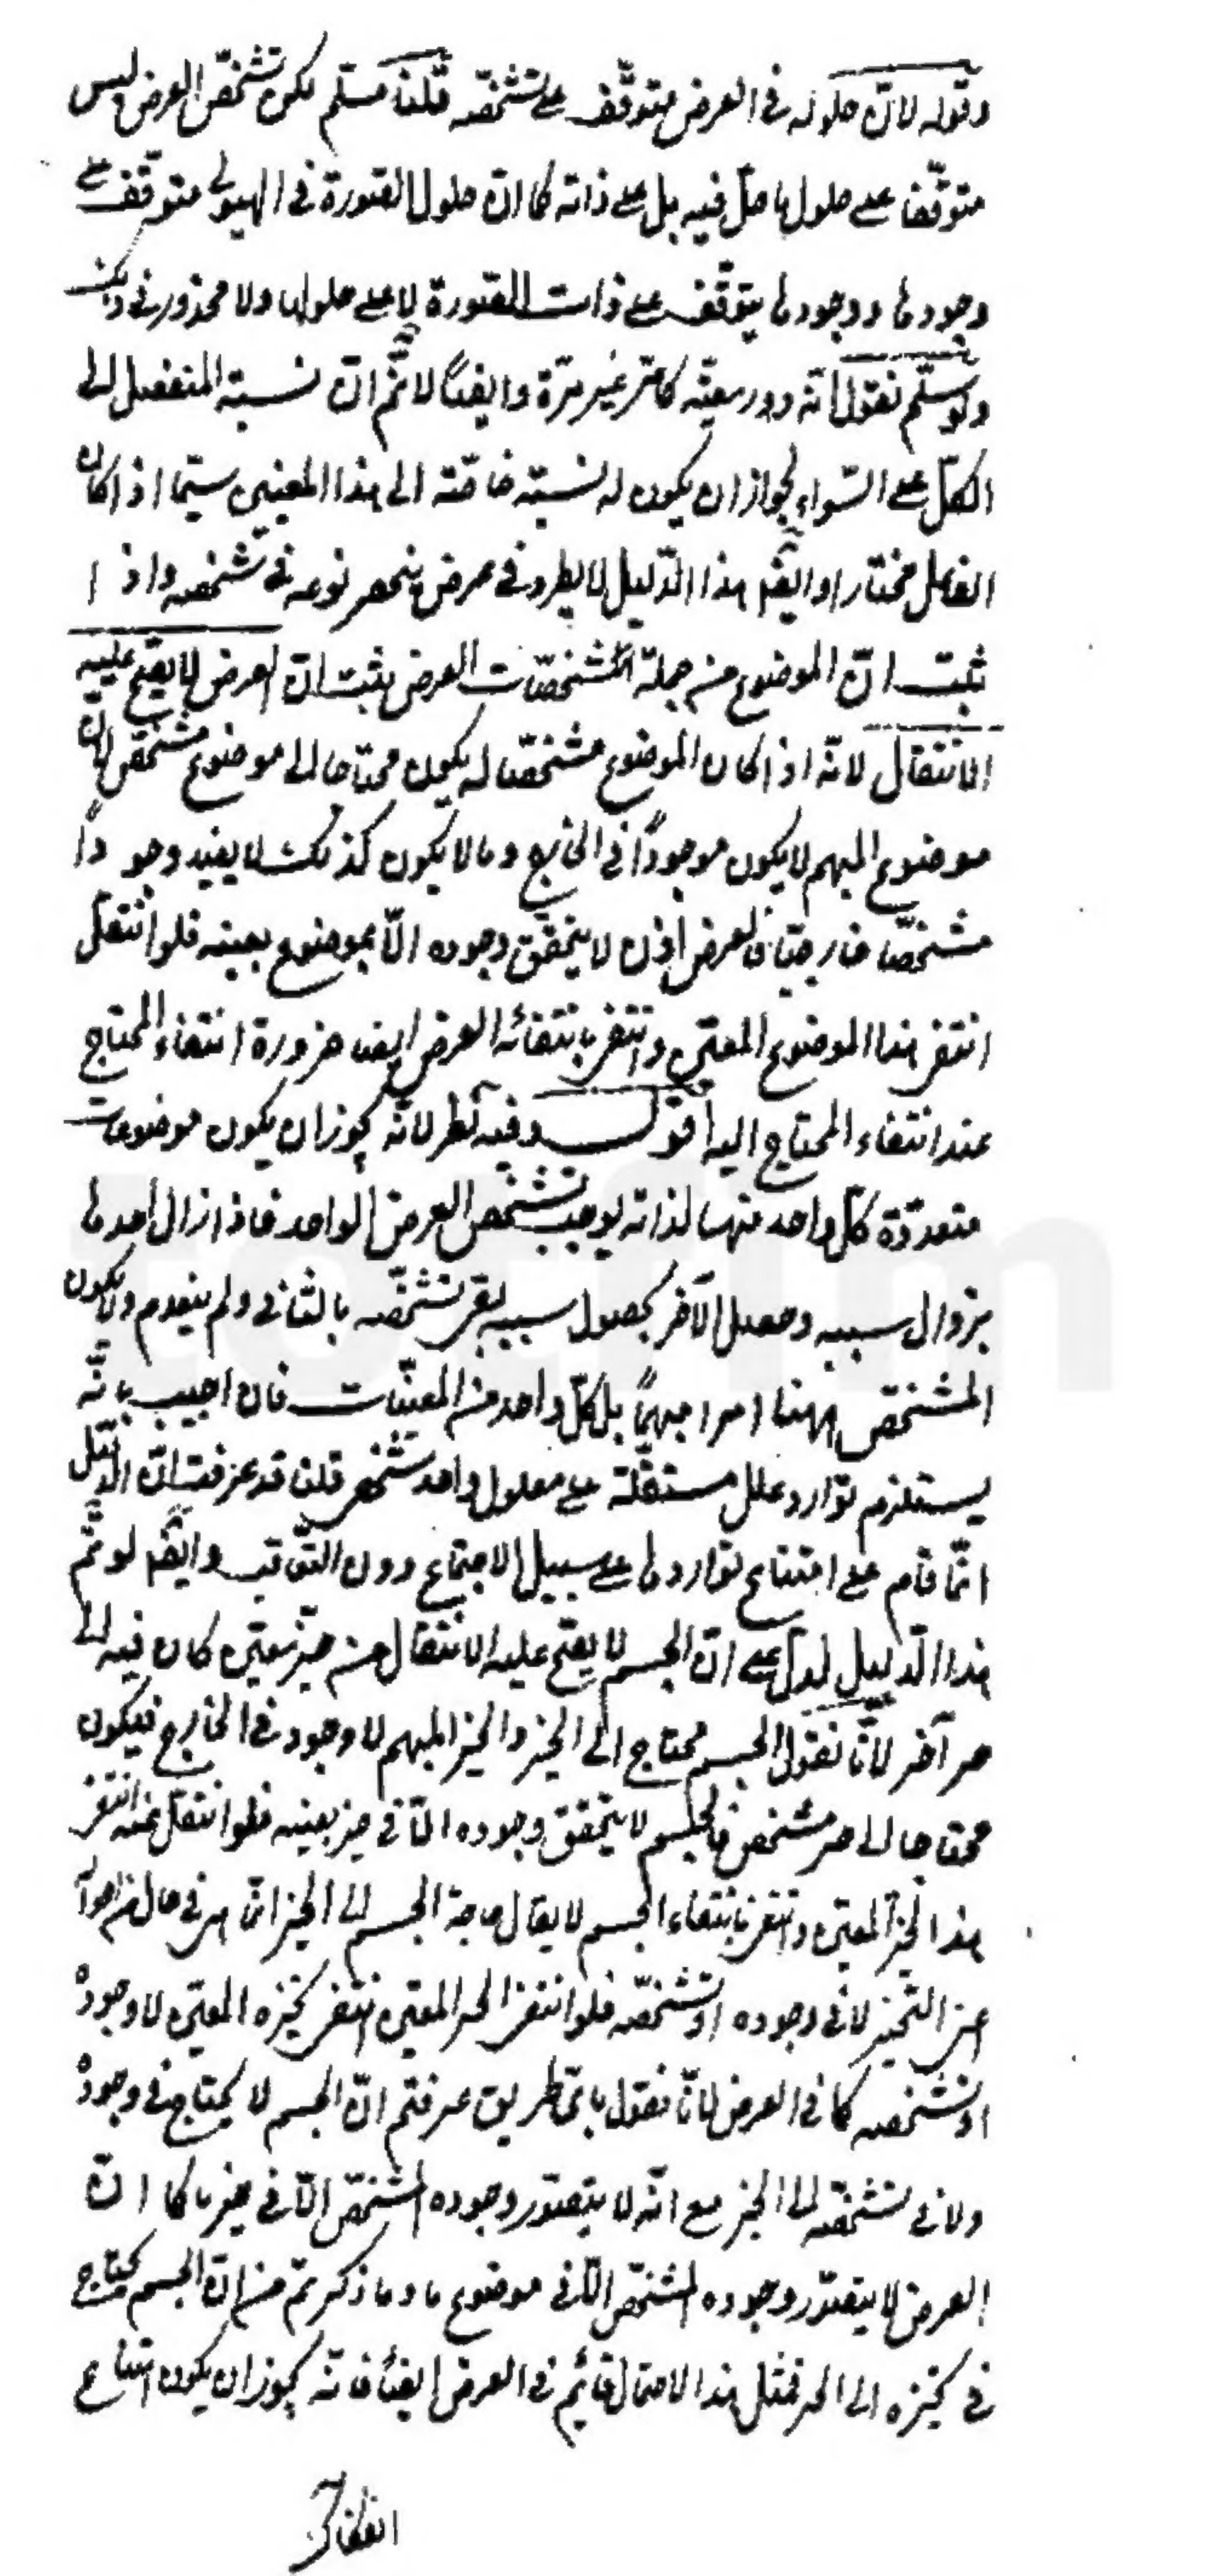 وقوله لانّ حلوله فى العرض متوقّف على تشخّصه قلنا مسلّم لكن تشخّص العرض ليس
متوقّفا على حلول ما حلّ فيه بل على ذاته كما انّ حلول الصّورة فى الهيولى متوقّف على
وجودها ووجودها يتوقّف على ذات الصّورة لا على حلولها ولا محذور فى ذلك
ولو سلّم نقول انّه دور معيّة كما مرّ غير مرّة وايضاً لا نمّ انّ نسبة المنفصل الى
الكلّ على السّواء لجواز ان يكون له نسبة خاصّة الى هذا المعين سيّما اذا كان
الفاعل مختارا وايضا هذا الدّليل لا يطرد فى عرض ينحصر نوعه فى شخصه واذ ا
ثبت انّ الموضوع من جملة المشخّصات العرض يثبت انّ العرض لا يصح عليه
الانتقال لانّه اذا كان الموضوع مشخّصا له يكون محتاجا الى موضوع مشخّص لان
موضوع المبهم لا يكون موجوداً فى الخارج وما لا يكون كذلك لا يفيد وجو داً
مشخّصا خارجيّا فالعرض اذن لا يتحقّق وجوده الّا بموضوع بعينه فلو انتقل
انتفى هذا الموضوع المعيّن وانتفى بانتفائه العرض ايضا ضرورة انتفاء المحتاج
عند انتفاء المحتاج اليه اقول وفيه نظر لانّه يجوز ان يكون موضوعات
متعدّدة كلّ واحد منها لذاته يوجب تشخّص العرض الواحد فاذا زال احدها
بزوال سببه وحصل الآخر بحصول سببه بقى تشخّصه بالثانى ولم ينعدم ولا يكون
المشخّص ههنا امرا مبهماً بل كلّ واحد من المعيّنات فان اجيب بانّه
يستلزم توارد علل مستقلّة على معلول واحد شخصى قلنا قد عرفت انّ الدّليل
انّما قام على امتناع تواردها على سبيل الاجتماع دون التّعاقب وايضا لو تمّ
هذا الدّليل لدلّ على انّ الجسم لا يصحّ عليه الانتقال من حيّز معيّن كان فيه الى
حيز آخر لانّا نقول الجسم محتاج الى الحيز والحيز المبهم لا وجود فى الخارج فيكون
محتاجا الى حيز مشخص فالجسم لا يتحقق وجوده الّا فى حيز بعينه فلو انتقل عنه انتفى
هذا الحيز المعيّن وانتفى بانتفاء الجسم لا يقال حاجة الجسم الى الحيز انّما هى فى حال من احواله
اعنى التّحيّز لا فى وجوده او تشخّصه فلو انتفى الحيز المعيّن انتفى تحيّزه المعيّن لا وجوده
او تشخصه كما فى العرض لانّا نقول باىّ طريق عرفتم انّ الجسم لا يحتاج فى وجوده
ولا فى تشخّصه الى الحيز مع انّه لا يتصوّر وجوده المشخّص الّا فى حيز ما كما انّ
العرض لا يتصوّر وجوده المشخّص الّا فى موضوع ما وما ذكرتم من انّ الجسم محتاج
فى تحيّزه الى الحيز فمثل هذا الاحتمال قائم فى العرض ايضاً فانّه يجوز ان يكون امتناع